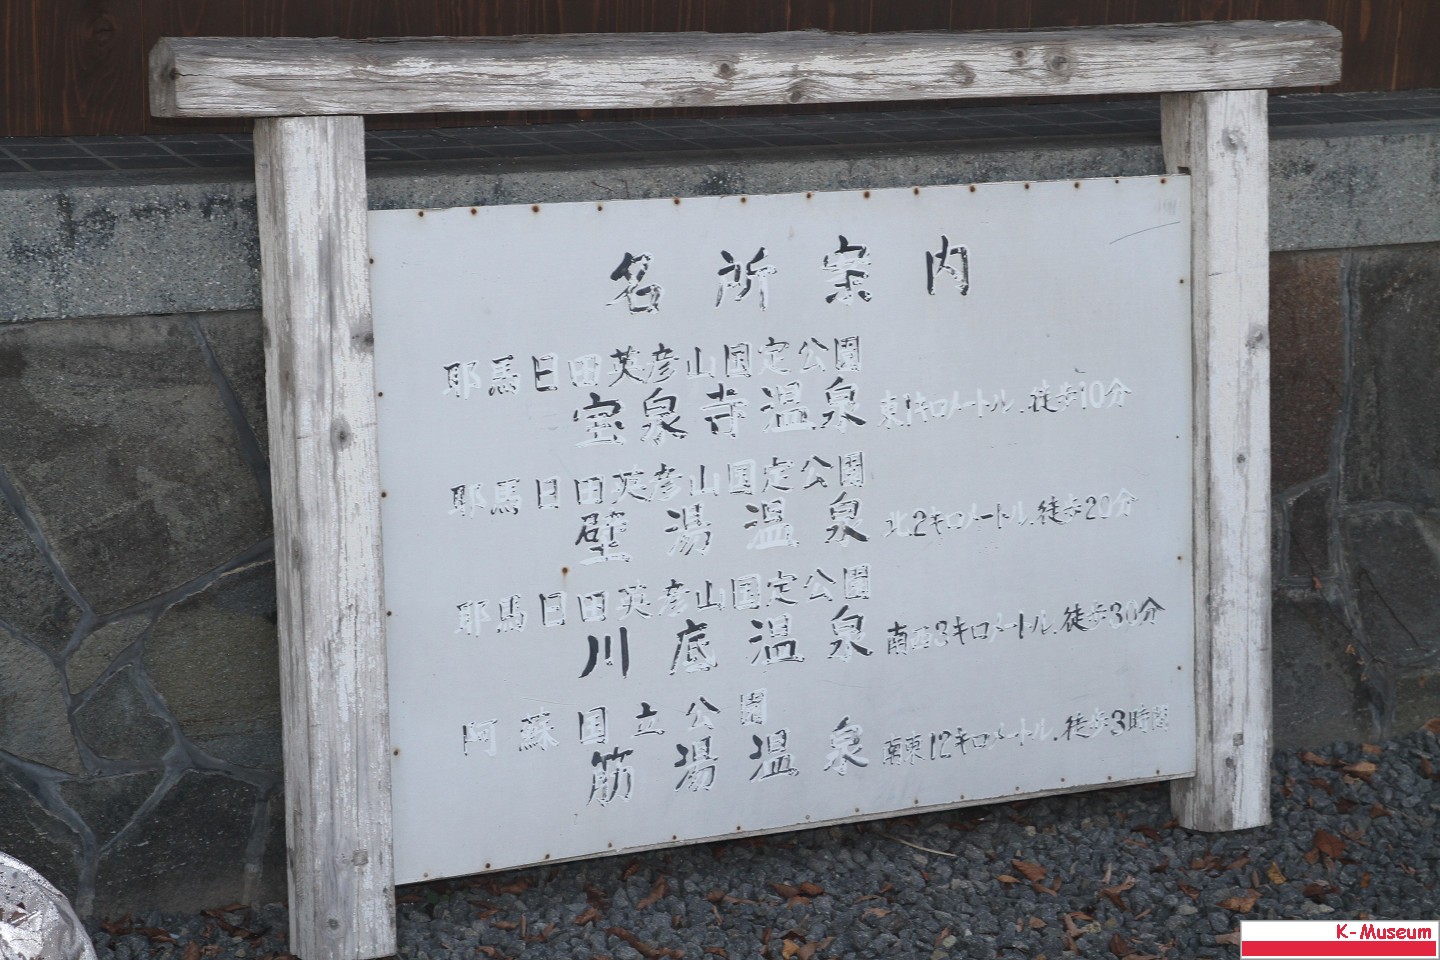 名所案内
耶馬日田英彦山国定公園
宝泉寺温泉 東1キロメートル.徒歩10分
耶馬日田英彦山国定公園
壁湯温泉 北.2キロメートル.徒歩20分
耶馬日田英彦山国定公園
川底温泉 南西3キロメートル.徒歩30分
阿蘇国立公園
筋湯温泉 南東12キロメートル.徒歩3時間
K-Museum